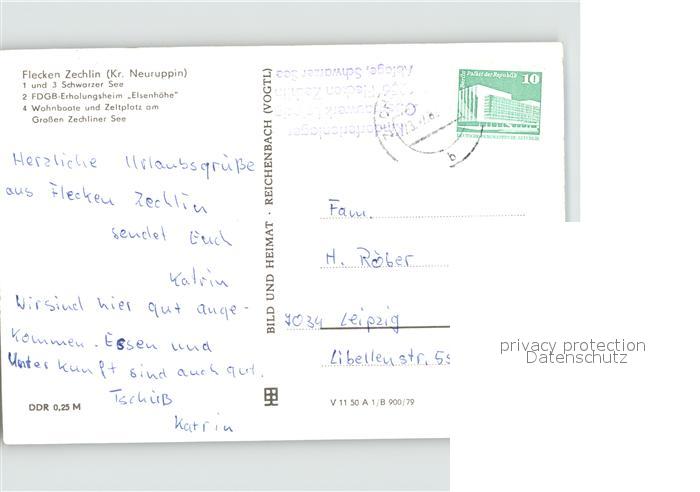 Flecken Zechlin (Kr. Neuruppin)
1 und 3 Schwarzer See
2 FDGB-Erholungsheim „Elsenhöhe"
4 Wohnboote und Zeltplatz am
Großen Zechliner See
Herzliche Urlaubsgrüße
aus Flecken Zechlin
sendet Euch
Katrin
Wir sind hier gut ange-
kommen. Essen und
Unterkunft sind auch gut.
Tschüß
Katrin
DDR 0,25 M
BILD UND HEIMAT · REICHENBACH (VOGTL)
Kinderferienlager
Flecken Zechlin
Ablage, Schwarzer See
Berlin Palast der Republik
10
b
Fam.
H. Röber
7034 Leipzig
Libellenstr.
V 11 50 A 1/B 900/79
privacy protection
Datenschutz